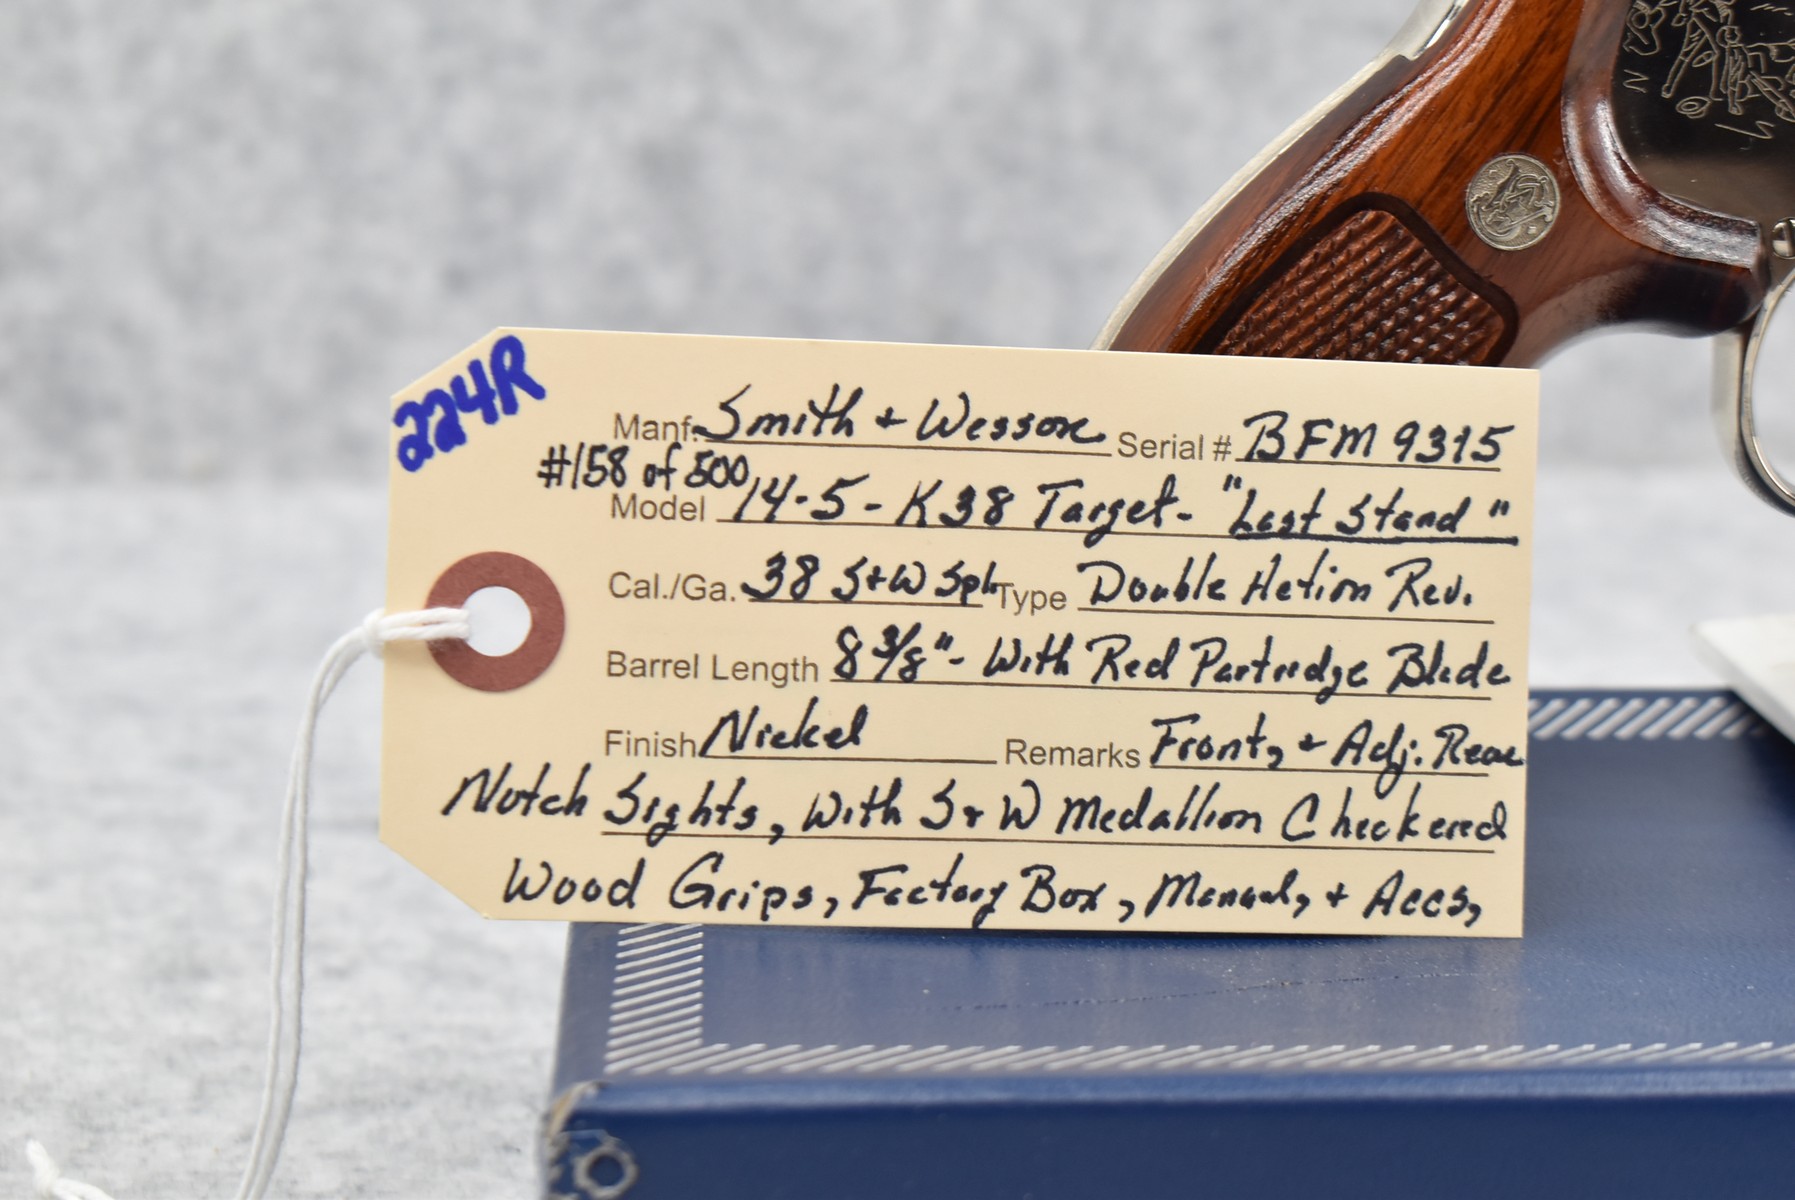 224R
Manf. Smith + Wesson Serial # BFM 9315
#158 of 500
Model 14-5 - K38 Target - "Last Stand"
Cal./Ga. 38 S+W Spl. Type Double Action Rev.
Barrel Length 8 3/8" - With Red Partridge Blade
Finish Nickel Remarks Front, + Adj. Rear
Notch Sights, With S+W Medallion Checkered
Wood Grips, Factory Box, Manual, + Accs,